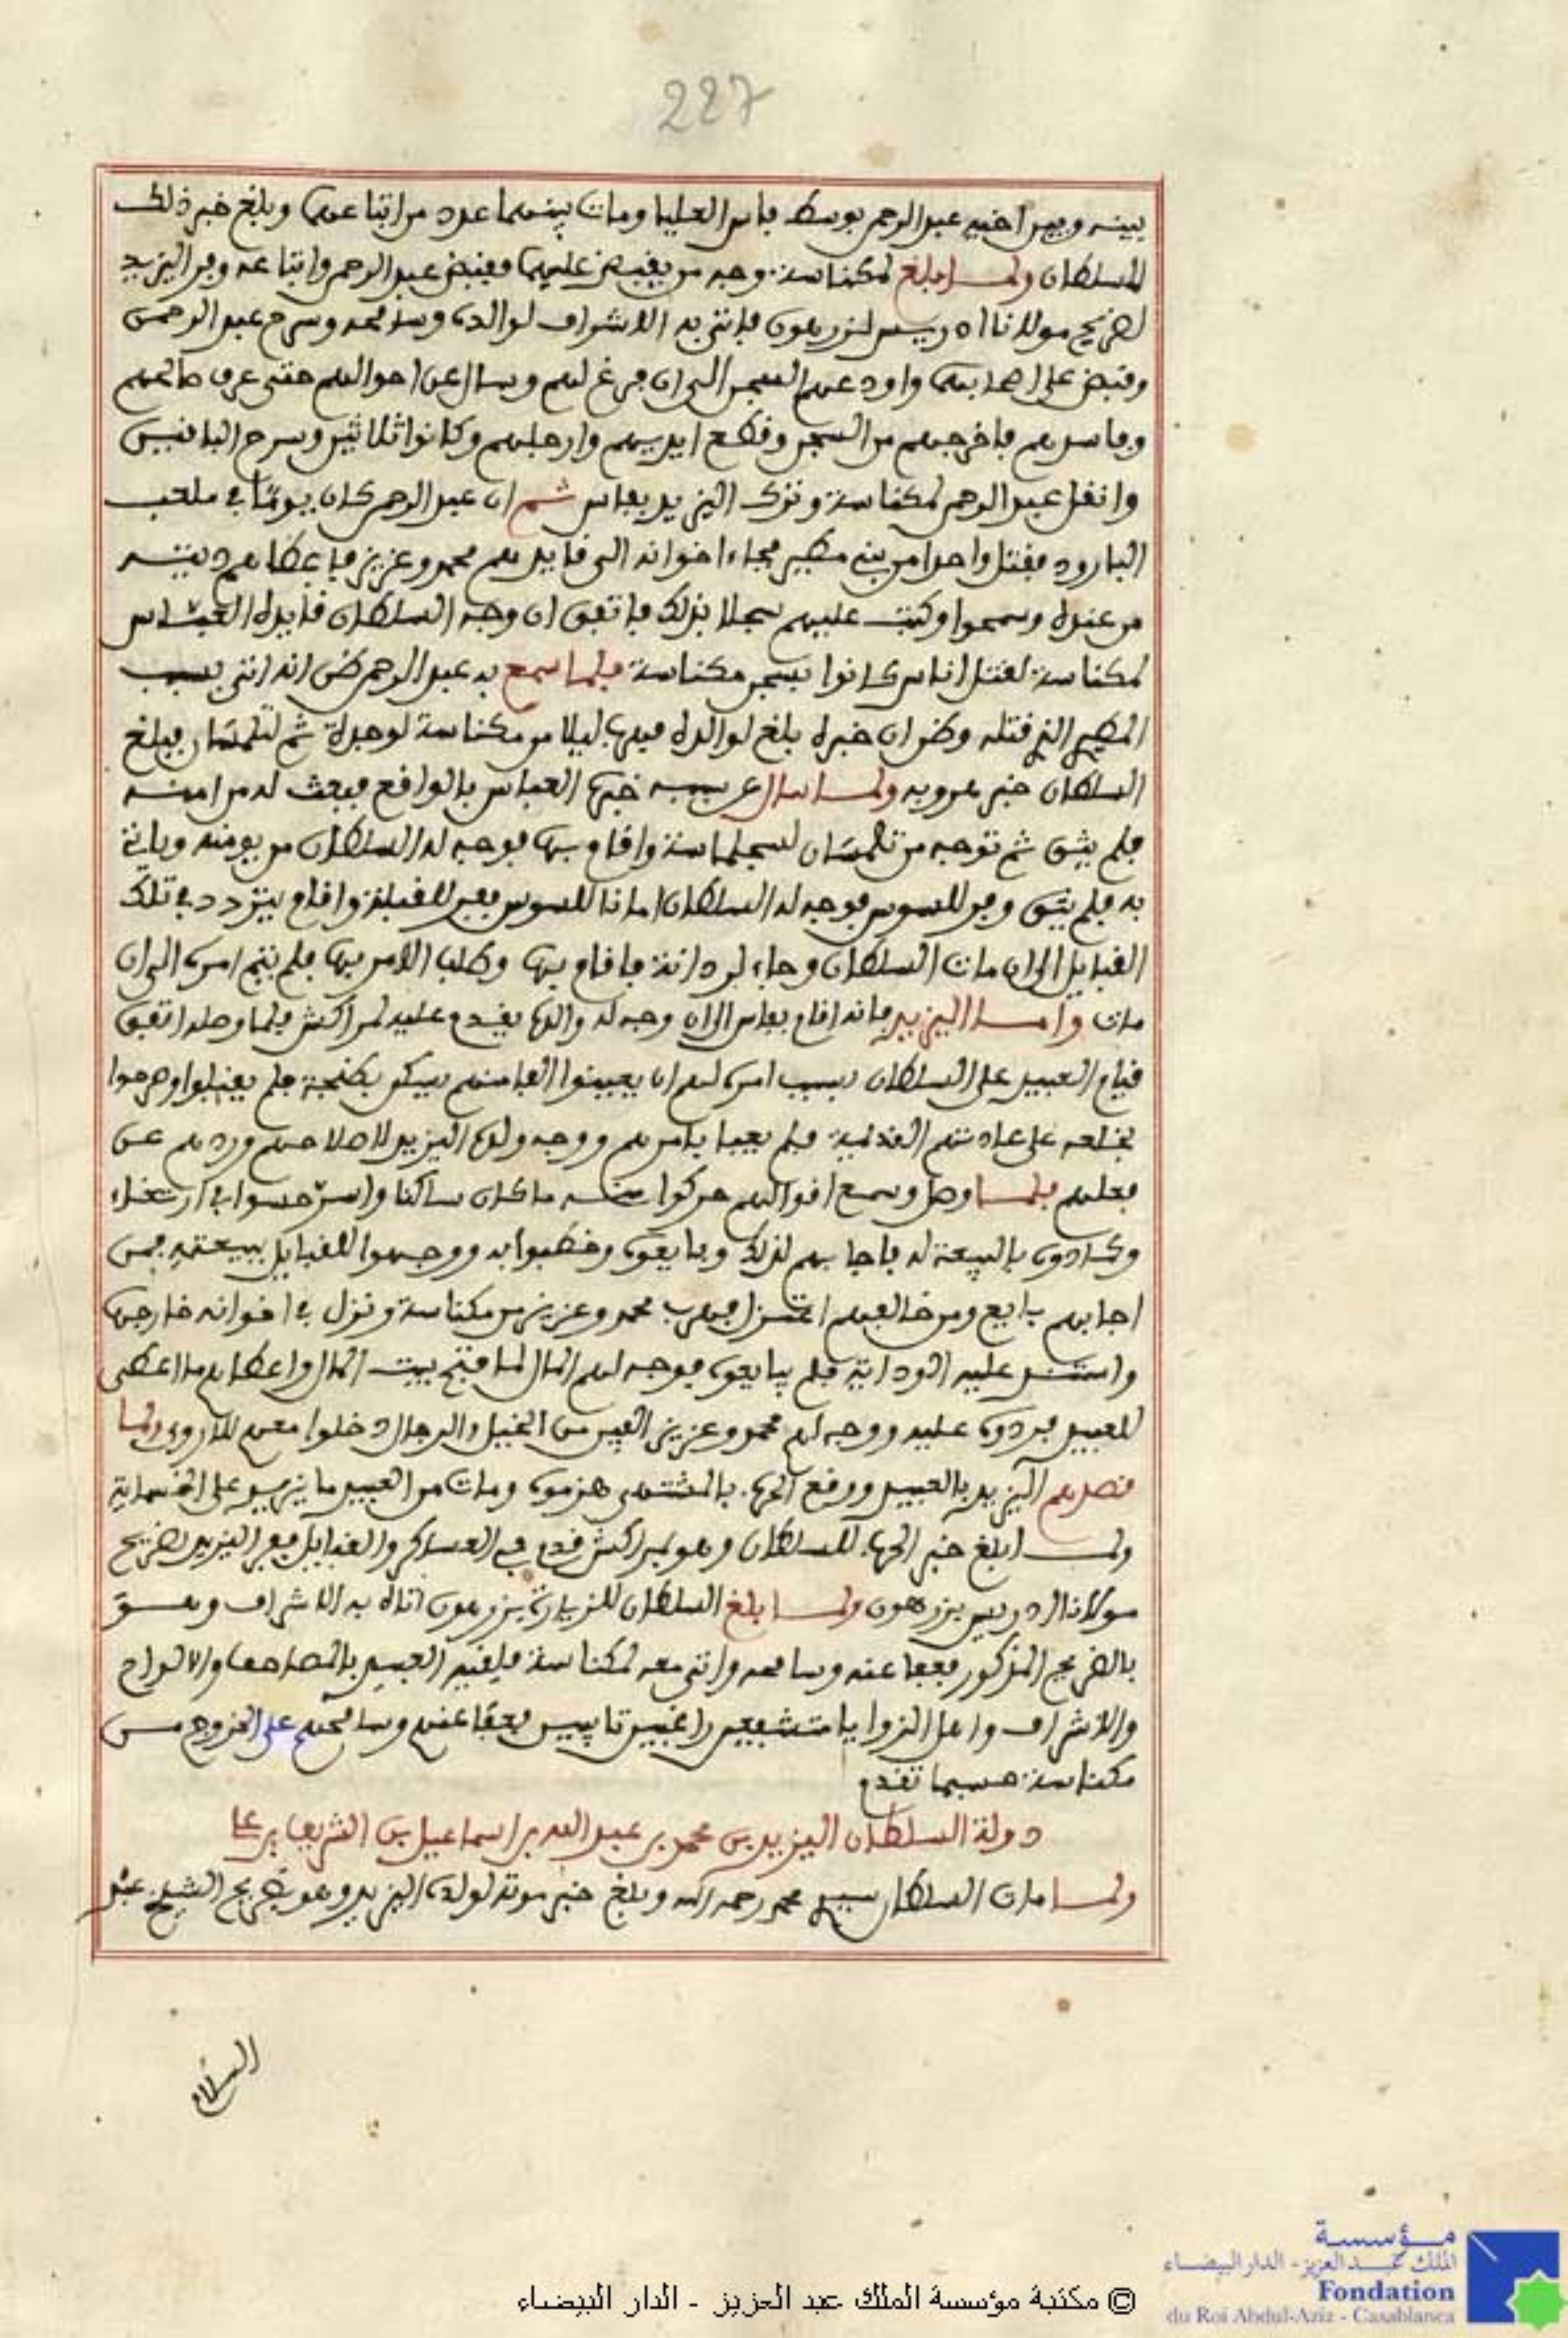 227
بينه وبين اخيه عبد الرحمن بوسط فاس العليا ومات بينهما عدد من اتباعهما وبلغ خبر ذلك
للسلطان ولما بلغ لمكناسة وجه من يقبض عليهما فقبض عبد الرحمن واتباعه وفر اليزيد
لضريح مولانا ادريس بزرهون فاتى به الاشراف لوالده وسامحه وسرح عبد الرحمن
وقبض على اصحابهما واودعهم السجن الى ان فرغ لهم وسال عن احوالهم حتى عرف صالحهم
وفاسدهم فاخرجهم من السجن وقطع ايديهم وارجلهم وكانوا ثلاثين وسرح الباقين
وانتقل عبد الرحمن لمكناسة وترك اليزيد بفاس ثم ان عبد الرحمن كان يوما في ملعب
البارود فقتل واحدا من بني مطير فجاء اخوانه الى قايدهم محمد وعزيز فاعطاهم ديته
من عنده وسمحوا وكتب عليهم سجلا بذلك فاتفق ان وجه السلطان قايده العباس
لمكناسة لقتل اناس كانوا بسجن مكناسة فلما سمع به عبد الرحمن ظن انه اتى بسبب
المطيري الذي قتله وظن ان خبره بلغ لوالده فهرب ليلا من مكناسة لوجدة ثم لتلمسان فبلغ
السلطان خبر هروبه ولما سال عن سببه خبره العباس بالواقع فبعث له من امنه
فلم يثق ثم توجه من تلمسان لسجلماسة واقام بها فوجه له السلطان من يومنه وياتي
به فلم يثق وفر للسوس فوجه له السلطان امانا للسوس ففر للقبلة واقام يتردد في تلك
القبايل الى ان مات السلطان وجاء لردانة فاقام بها وطلب الامر بها فلم يتم امره الى ان
مات واما اليزيد فانه اقام بفاس الى ان وجه له والده يقدم عليه لمراكش فلما وصله اتفق
قيام العبيد على السلطان بسبب امره لهم ان يعينوا الفا منهم يسكن بطنجة فلم يقبلوا وصرحوا
بخلعه على عادتهم القديمة فلم يعبا بامرهم ووجه ولده اليزيد لاصلاحهم وردهم عن
فعلهم فلما وصل وسمع اقوالهم حركوا منه ما كان ساكنا
وكادوه بالبيعة له فاجابهم لذلك وبايعوه وخطبوا به ووجهوا للقبايل ببيعته فمن
اجابهم بايع ومن خالفهم اعتزل فهرب محمد وعزيز من مكناسة ونزل في اخوانه خارجها
وامتنع عليه الودايا فلم يبايعوه فوجه لهم المال لما فتح بيت المال واعطاهم ما اعطى
للعبيد فردوه عليه ووجه لهم محمد وعزيز الفين من الخيل والرجال دخلوا معهم للاروى ولما
قصدهم اليزيد بالعبيد ووقع الحرب بالمشتهى هزموه ومات من العبيد ما يزيد على الخمسماية
ولما بلغ خبر الحرب للسلطان وهو بمراكش قدم في العساكر والقبايل ففر اليزيد لضريح
مولانا ادريس بزرهون ولما بلغ السلطان للزيارة بزرهون اتاه به الاشراف وهو
بالضريح المذكور فعفا عنه وسامحه واتى معه لمكناسة فلقيه العبيد بالمصاحف والالواح
والاشراف واهل الزوايا متشفعين راغبين تايبين فعفا عنهم وسامحهم على الخروج من
مكناسة حسبما تقدم
دولة السلطان اليزيد بن محمد بن عبد الله بن اسماعيل بن الشريف بن علي
ولما مات السلطان سيدي محمد رحمه الله وبلغ خبر موته لولده اليزيد وهو بضريح الشيخ عبد
السلام
© مكتبة مؤسسة الملك عبد العزيز - الدار البيضاء
مؤسسة
الملك عبد العزيز - الدار البيضاء
Fondation
du Roi Abdul-Aziz - Casablanca